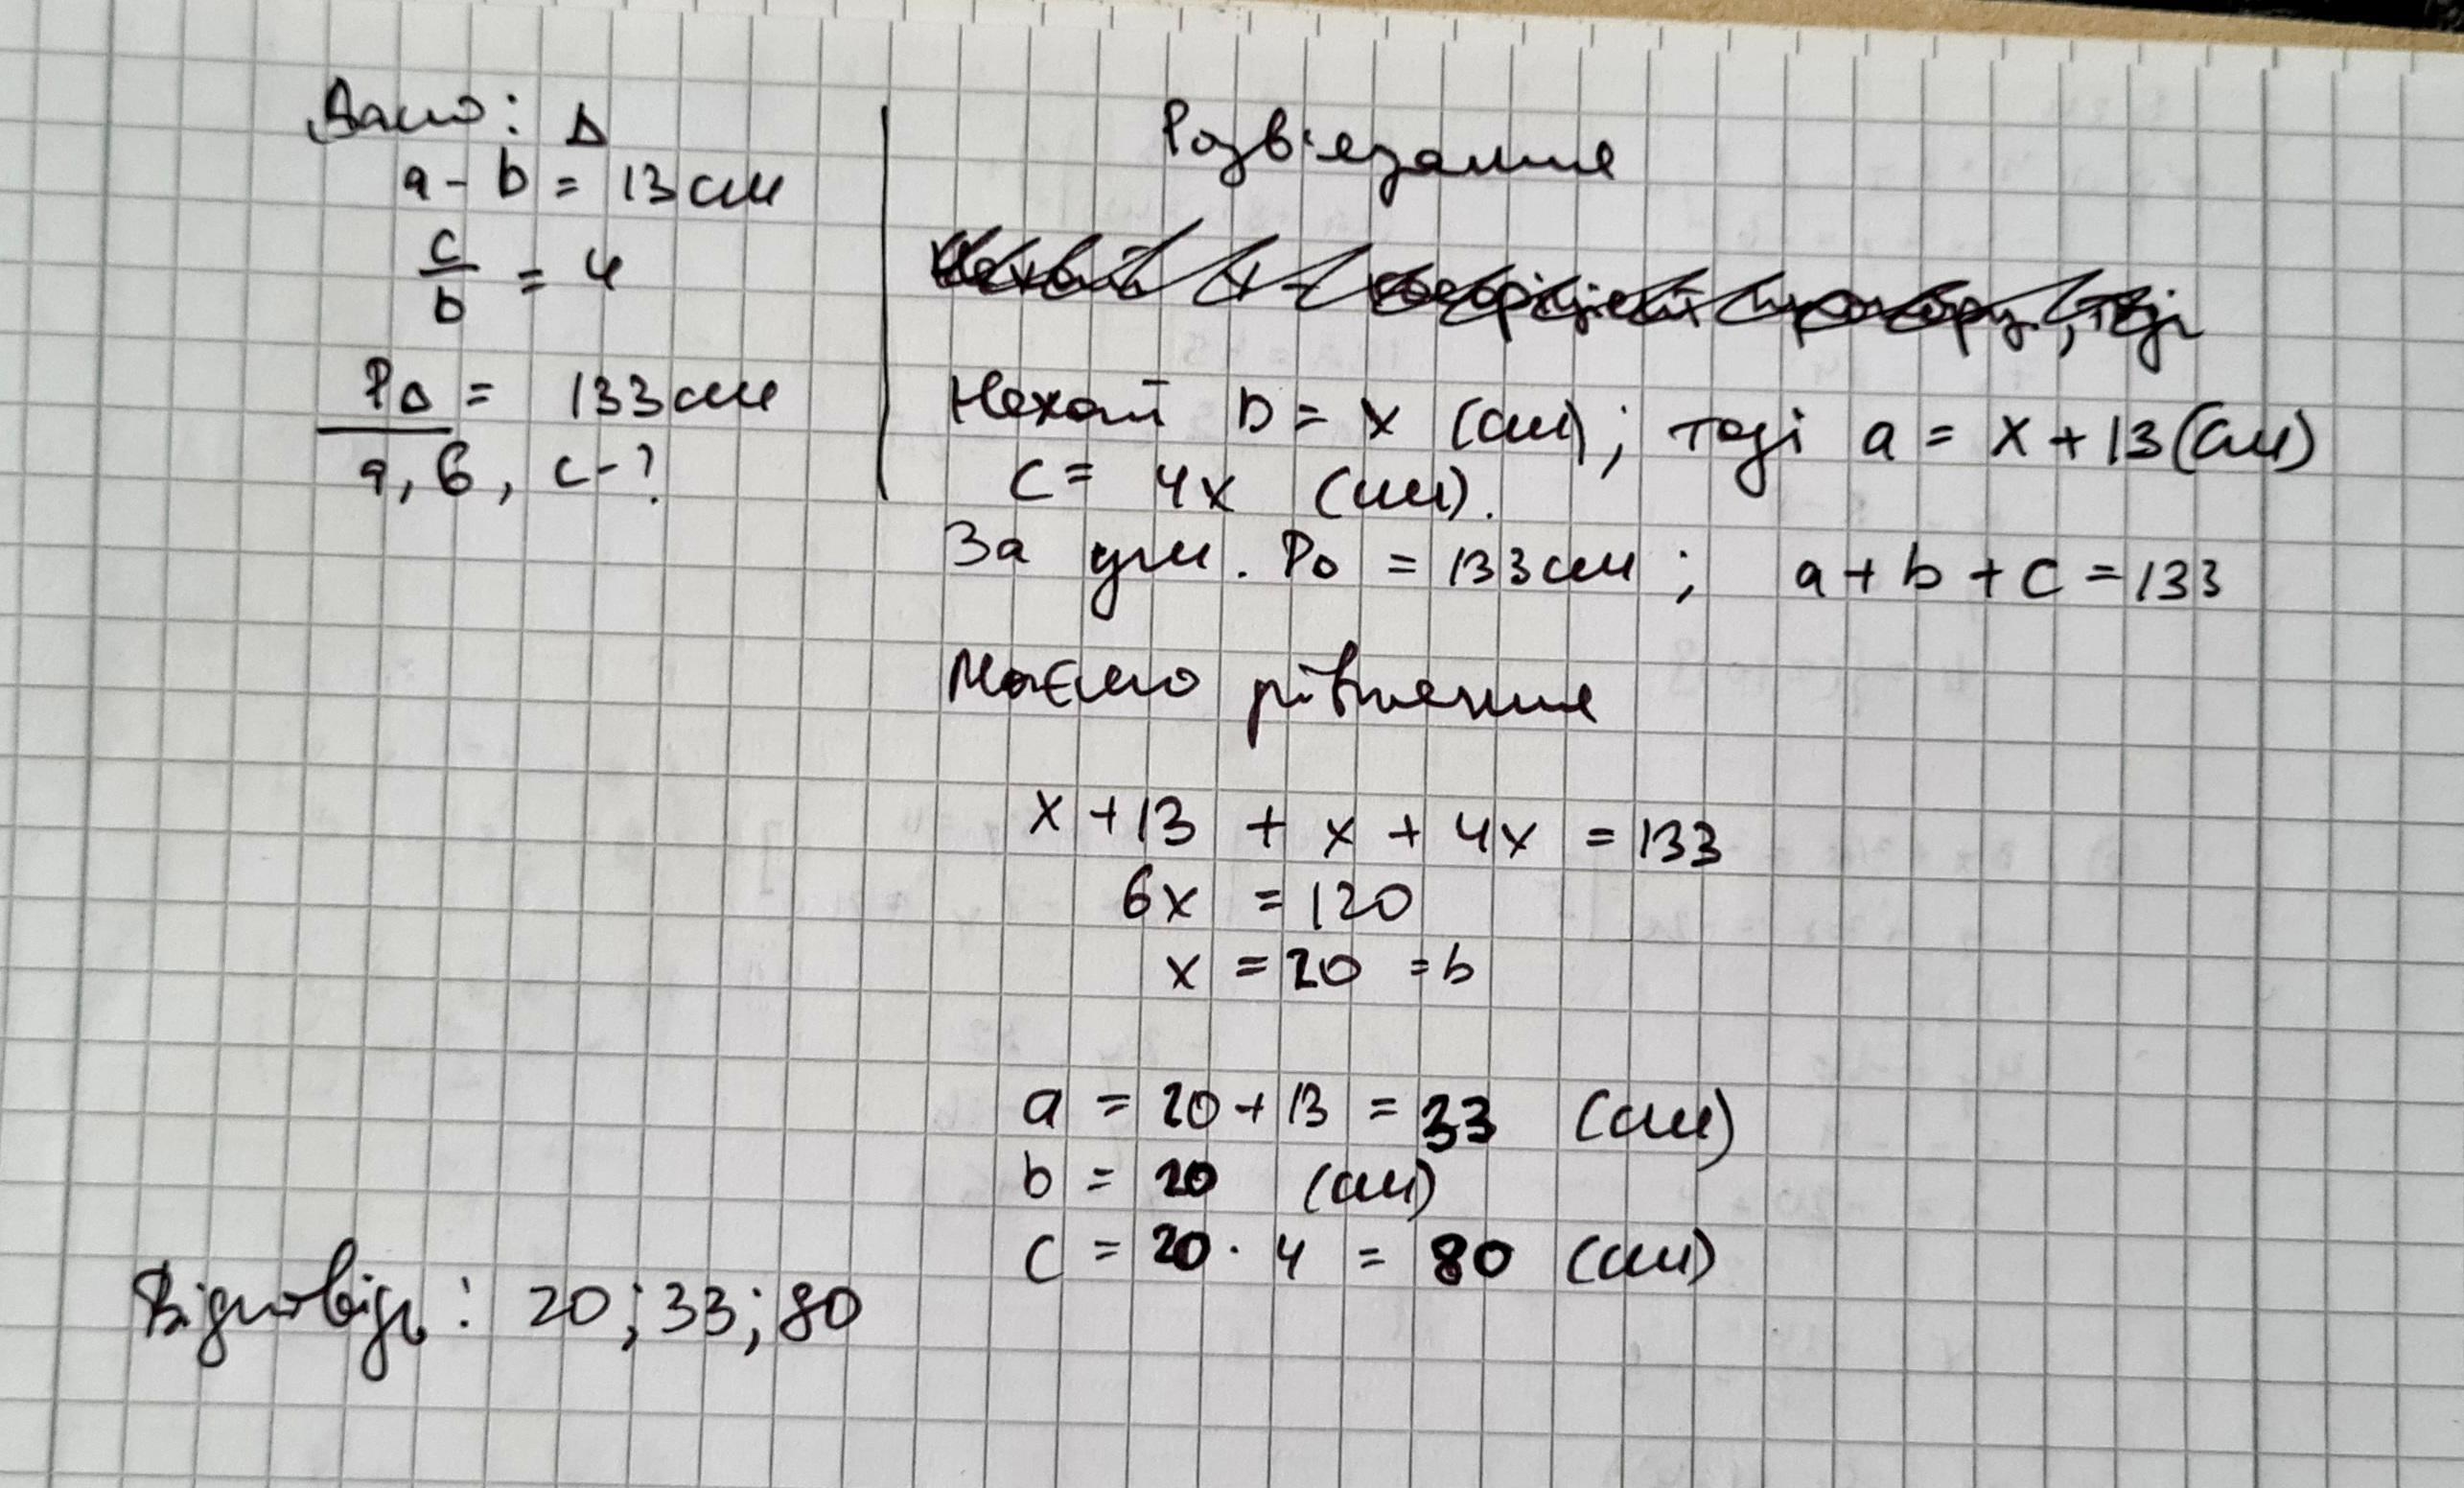 Дано: Δ
a - b = 13 см
c/b = 4
PΔ = 133 см
a, b, c - ?
Розв'язання
Нехай x - коефіцієнт пропорц., тоді
Нехай b = x (см); тоді a = x + 13 (см)
c = 4x (см).
За ум. PΔ = 133 см; a + b + c = 133
Маємо рівняння
x + 13 + x + 4x = 133
6x = 120
x = 20 = b
a = 20 + 13 = 33 (см)
b = 20 (см)
c = 20 · 4 = 80 (см)
Відповідь: 20; 33; 80